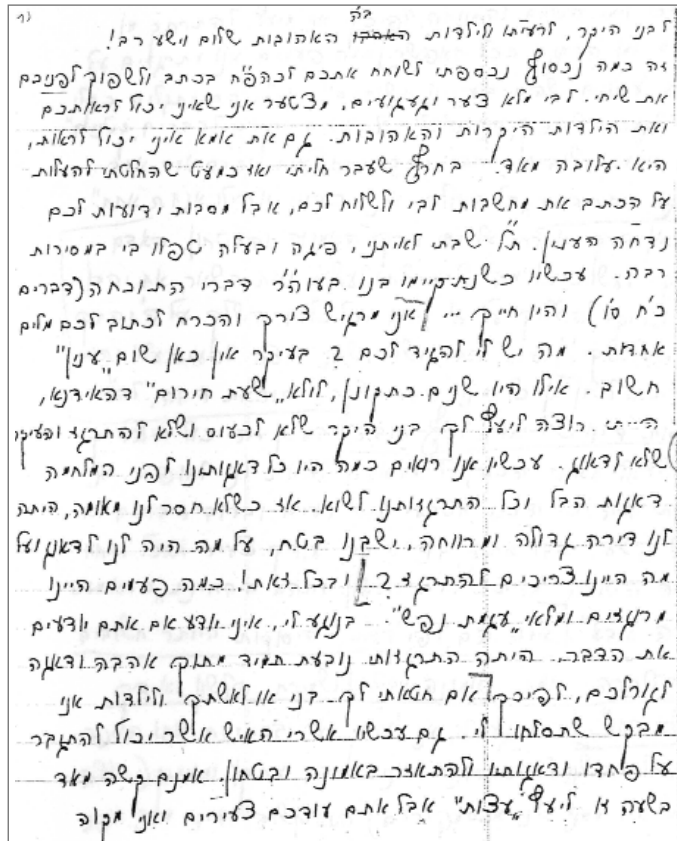 ב"ה
(1
לבני היקר, לרעיתו ולילדות האהובות שלום וישע רב!
זה כמה נכסוף נכספתי לשוחח אתכם לכה"פ בכתב ולשפוך לפניכם
את שיחי. לבי מלא צער וגעגועים. מצטער אני שאיני יכול לראותכם
ואת הילדות היקרות והאהובות. גם את אמא איני יכול לראות,
היא עלובה מאד. בחרף שעבר חליתי ואז כמעט שהחלטתי להעלות
על הכתב את מחשבות לבי ולשלוח לכם, אבל מסבות ידועות לכם
נדחה הענין. ת"ל שבתי לאיתני, פיגה ובעלה טפלו בי במסירות
רבה. עכשיו כשנתקיימו בנו בעוה"ר דברי התוכחה (דברים
כ"ח ס"ו) והיו חייך ... אני מרגיש צורך והכרח לכתוב לכם מלים
אחדות. מה יש לי להגיד לכם? בעיקר אין כאן שום "ענין"
חשוב. אילו היו שנים כתקונן, לולא "שעת חירום" דהאידנא,
הייתי רוצה ליעץ לך בני היקר שלא לכעוס ושלא להתרגז והעיקר
שלא לדאוג. עכשיו אנו רואים כמה היו כל דאגותנו לפני המלחמה
דאגות הבל וכל התרגזותנו לשוא. אז כשלא חסר לנו מאומה, היתה
לנו דירה גדולה ומרווחה, ישבנו בטח, על מה היה לנו לדאוג ועל
מה היינו צריכים להתרגז? ובכל זאת! כמה פעמים היינו
מרוגזים ומלאי "עגמת נפש". בנוגע לי, איני יודע אם אתם יודעים
את הדבר, היתה התרגזותי נובעת תמיד מתוך אהבה ודאגה
לגורלכם, לפיכך אם חטאתי לך בני או לאשתך ולילדות אני
מבקש שתסלחו לי. גם עכשיו אשרי האיש אשר יכול להתגבר
על פחדו ודאגותיו ולהתאזר באמונה ובטחון. אמנם קשה מאד
בשעה זו ליעץ "עצות" אבל אתם עודכם צעירים ואני מקוה